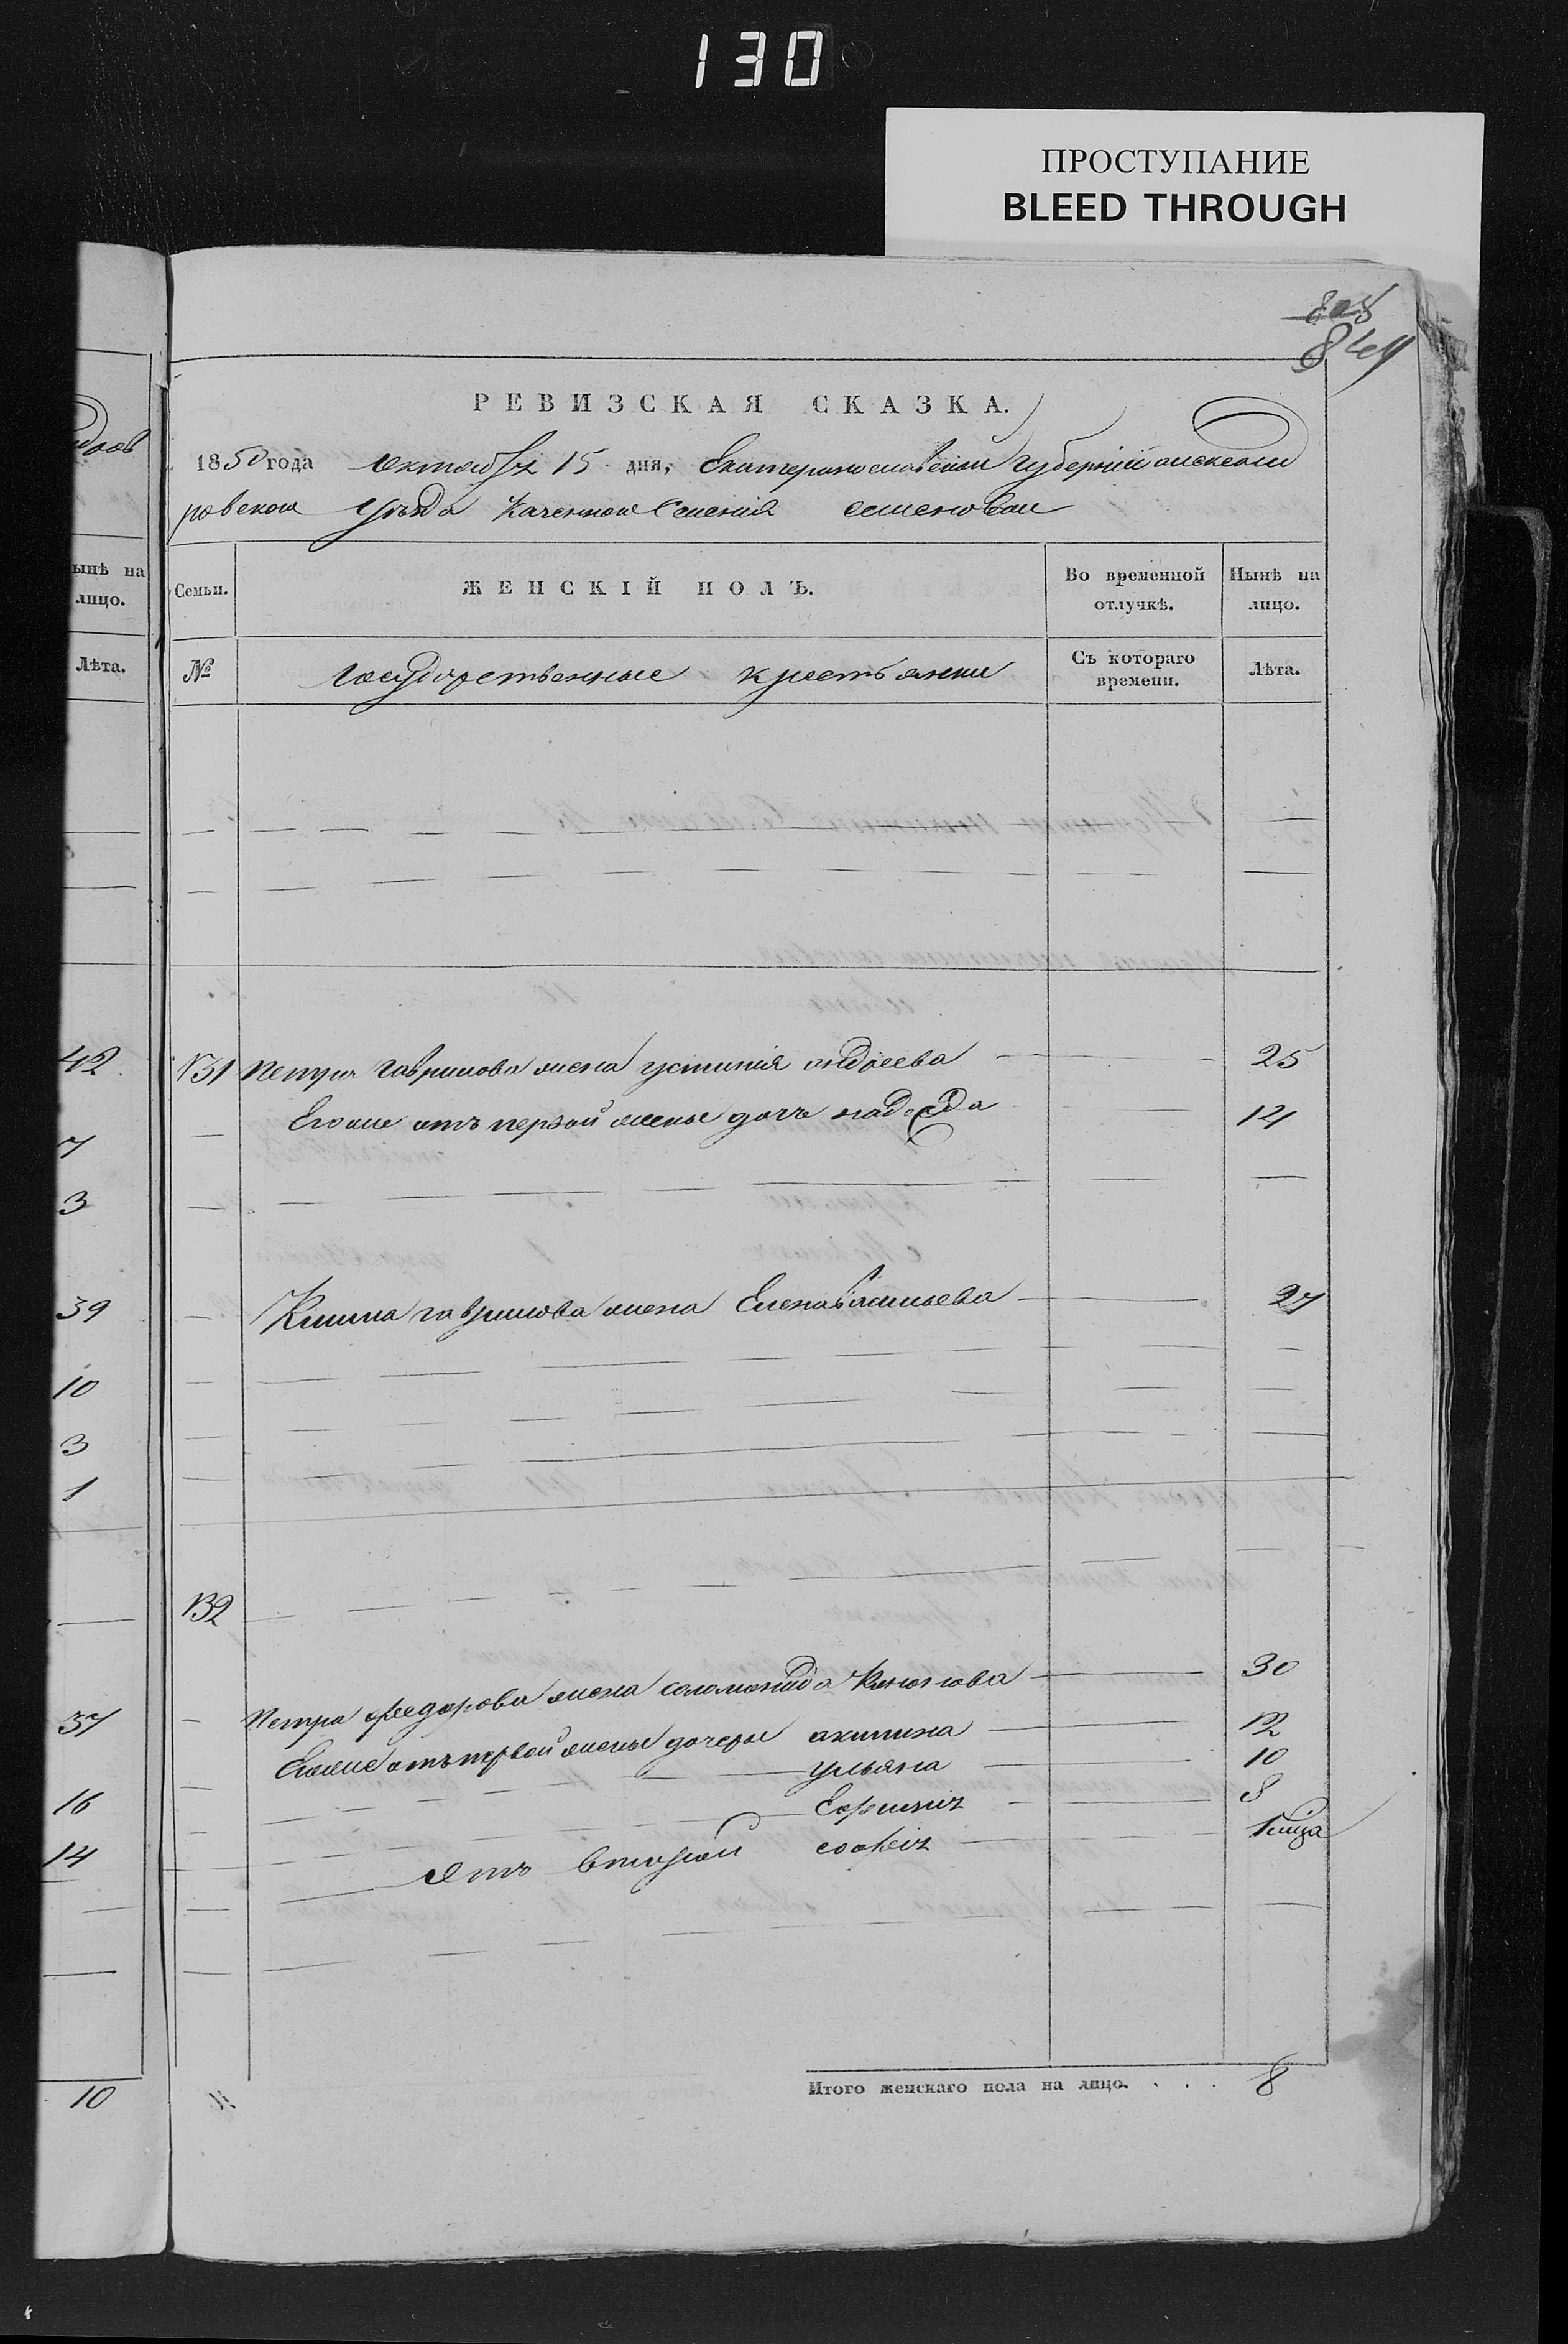 130
ПРОСТУПАНИЕ
BLEED THROUGH
РЕВИЗСКАЯ СКАЗКА.
1850 года октября 15 дня, Екатеринославской губернии александ
ровского уѣзда Казенного селения
ынѣ на лицо.
Лѣта.
Семьи.
ЖЕНСКІЙ ПОЛЪ.
Во временной отлучкѣ.
Нынѣ на лицо.
№
государственные крестьянки
Съ котораго времени.
Лѣта.
42
7
3
39
10
3
1
37
16
14
10
131 Петра гаврилова жена устинія андреева 25
Его же отъ первой жены дочь надежда
гаврилова жена Елена васильева 27
132
Петра федорова жена соломонида 30
Его же отъ первой жены дочеры акилина 12
ульяна 10
8
отъ второй софия
Итого женскаго пола на лицо. . . . 8